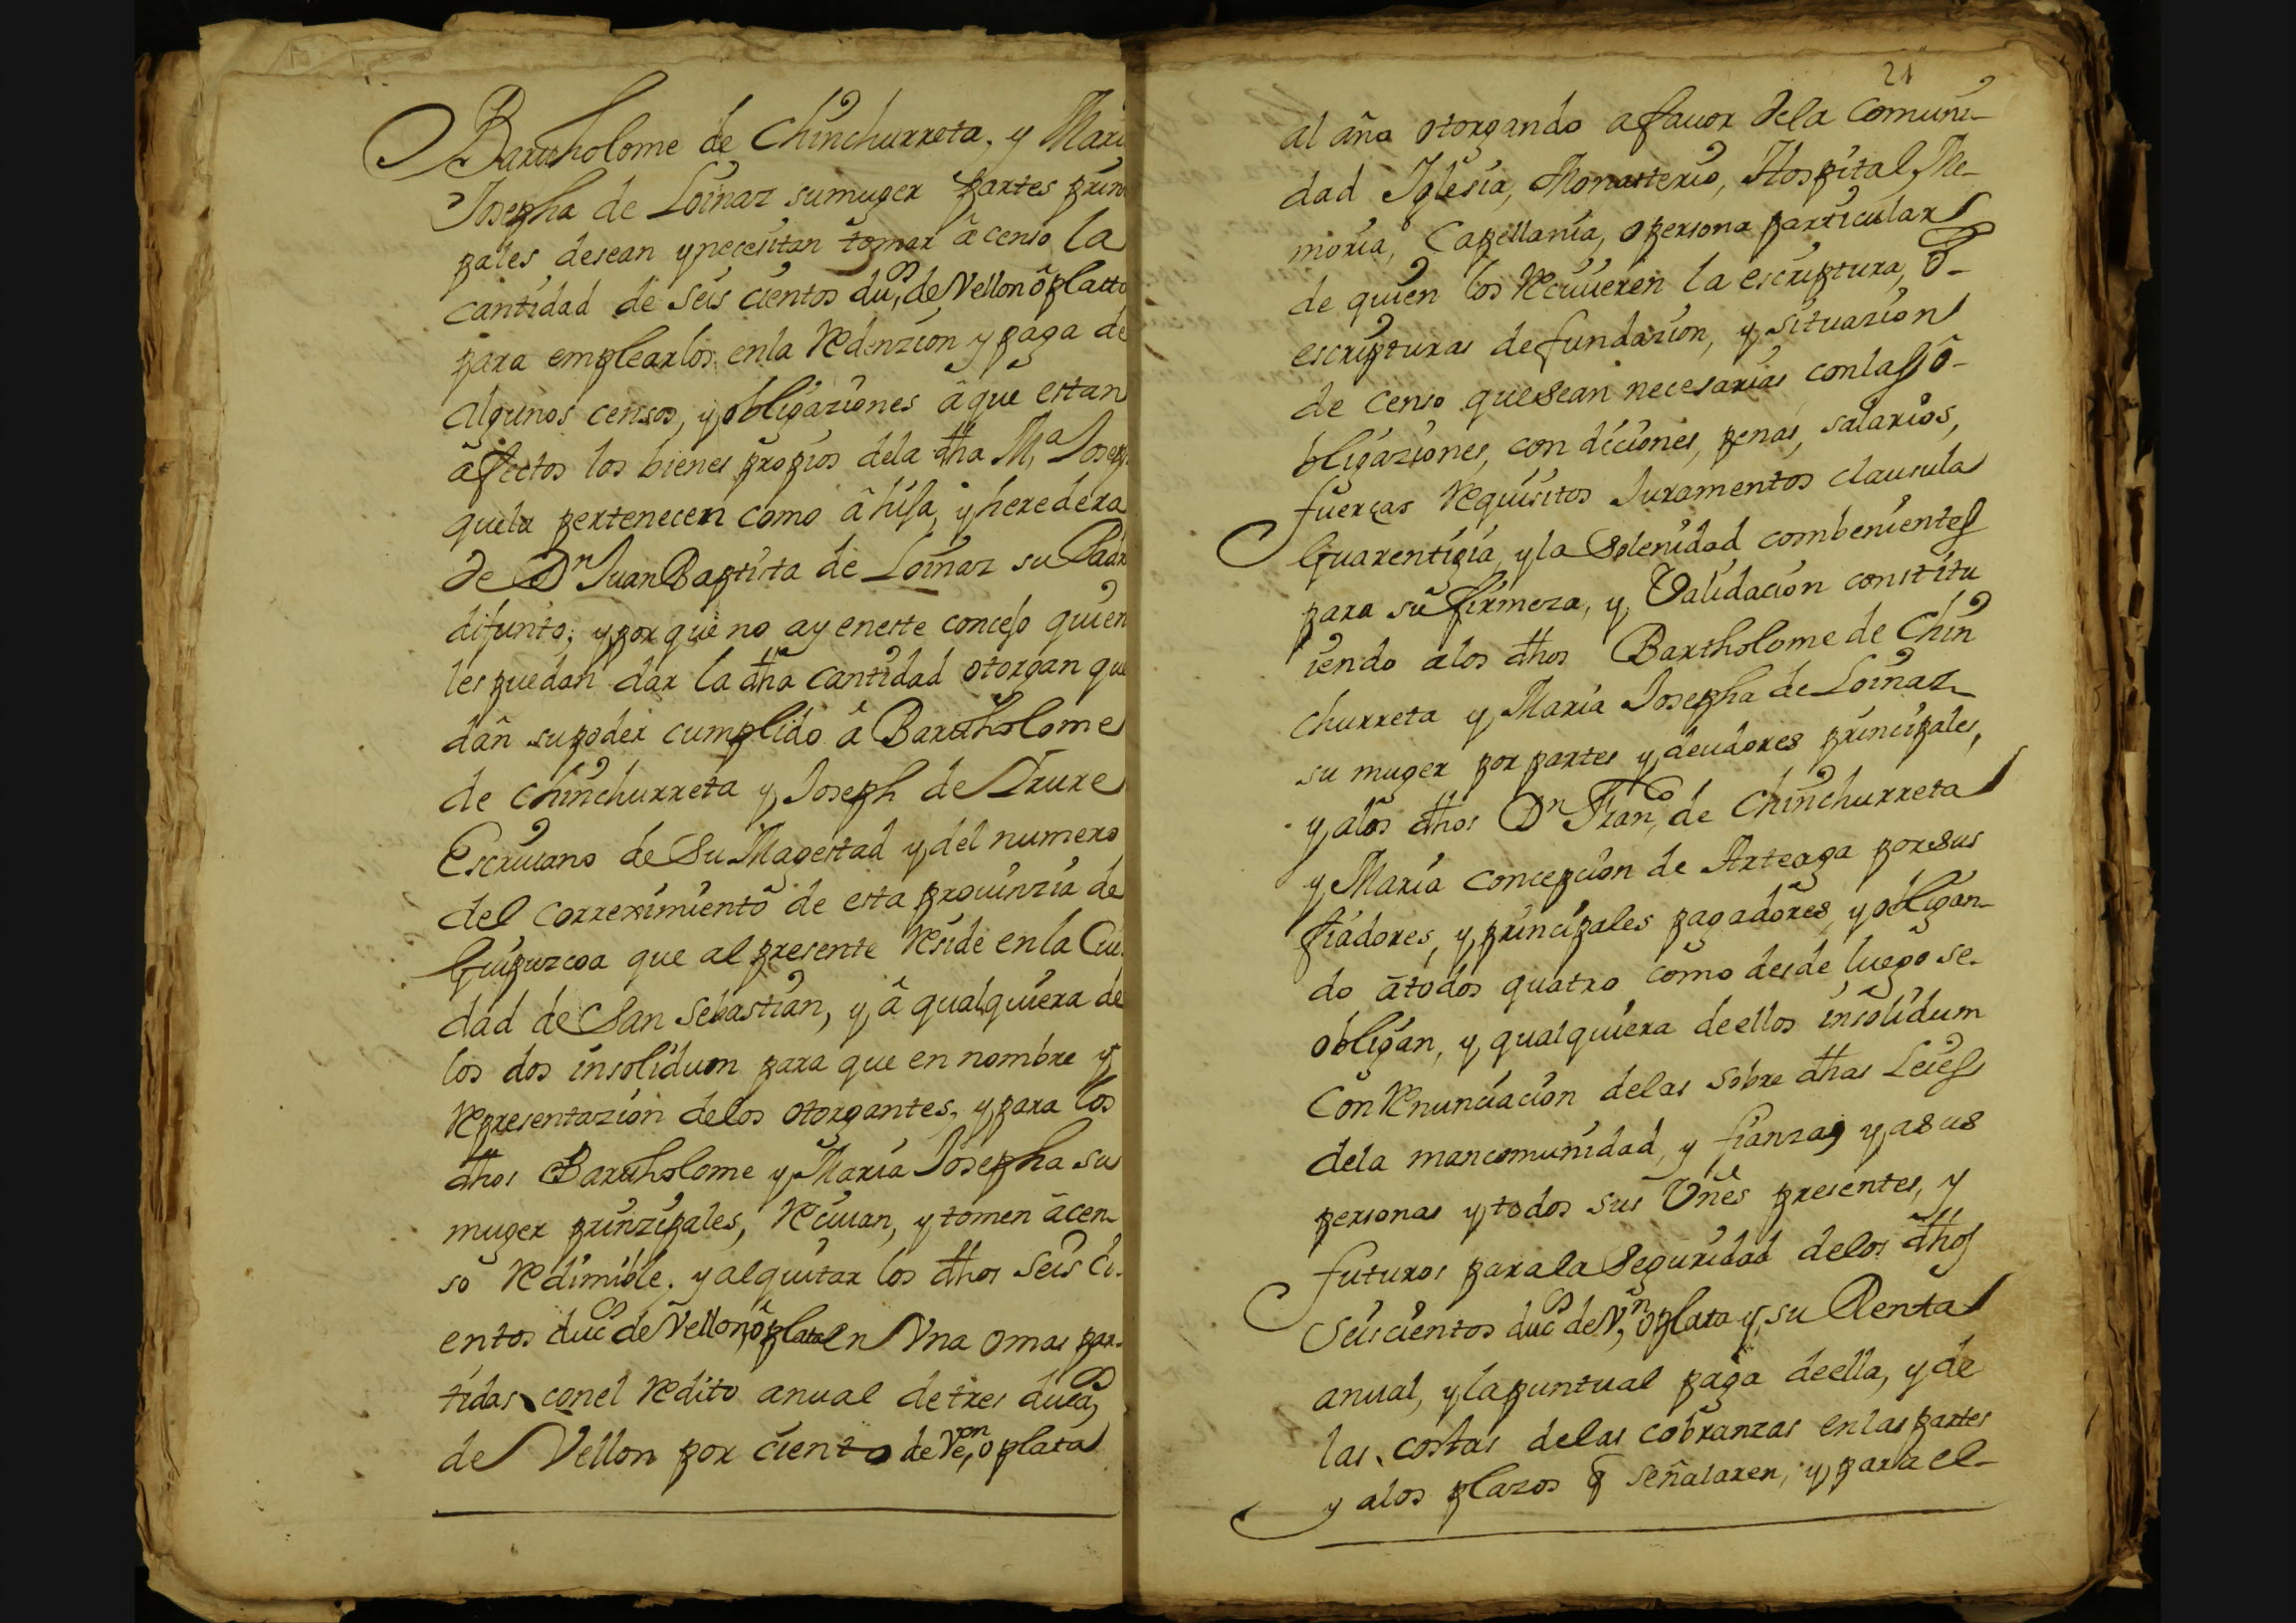 Bartholome de Chinchurreta, y Mari
Josepha de Loinaz su muger partes prin
pales desean y necesitan tomar â censo la
cantidad de seis cientos du.os de Vellon ô platta
para emplearlos en la Redenzion y paga de
algunos censos, y obligaziones â que estan
âfectos los bienes propios dela dha M.a Josep
quela pertenecen como â hija, y heredera
de Dn Juan Baptista de Loinaz su Padr
difunto; y por que no ay eneste concejo quien
les puedan dar la dha cantidad otorgan que
dan su poder cumplido â Bartholome
de Chinchurreta y Joseph de Irure
Escriuano de Su Magestad y del numero
del correximiento de esta prouinzia de
Guipuzcoa que al presente Reside en la Ciu.
dad de San Sebastian, y â qualquiera de
los dos insolidum para que en nombre y
Representazion delos otorgantes, y para los
dhos Bartholome y Maria Josepha su
muger prinzipales, Reciuan, y tomen âcen-
so Redimible. y al quitar los dhos seis ci-
entos duc.os de Vellon, ô plata en Vna o mas par-
tidas con el Redito anual de tres duca.os
de Vellon por ciento de Ve.on o plata
21
al año otorgando a fauor dela Comuni-
dad Iglesia, Monasterio, Hospital, Me-
moria, Capellania, o persona particular
de quien los Reciuieren la escriptura, o-
escripturas de fundazion, y situazion
de censo que sean necesarias con las ô-
bligaziones, condiciones, penas, salarios,
fuerças Requisitos Juramentos clausula
Guarentigia, y la Solenidad combenientes
para su firmeza, y Validacion constitu
iendo alos dhos Bartholome de Chin
churreta y Maria Josepha de Loinaz
su muger por partes y deudores principales,
y alos dhos Dn Fran.co de Chinchurreta
y Maria concepcion de Arteaga por sus
fiadores, y principales pagadores, y obligan-
do âtodos quatro como desde luego se-
obligan, y qualquiera deellos insolidum
Con Renunciacion delas sobre dhas Leies
dela mancomunidad, y fianzas y a sus
personas y todos sus Vnes presentes, y
futuros para la Seguridad delos dhos
Seis cientos duc.os de V.n o plata y su Renta
anual, y la puntual paga deella, y de
las costas delas cobranzas en las partes
y alos plazos q señalaren, y para el-